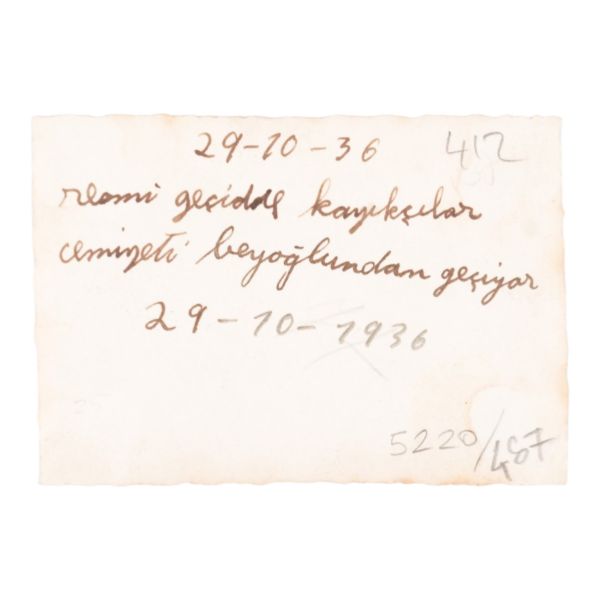 29-10-36
412
resmi geçidde kayıkçılar
cemiyeti beyoğlundan geçiyor
29-10-1936
5220/487